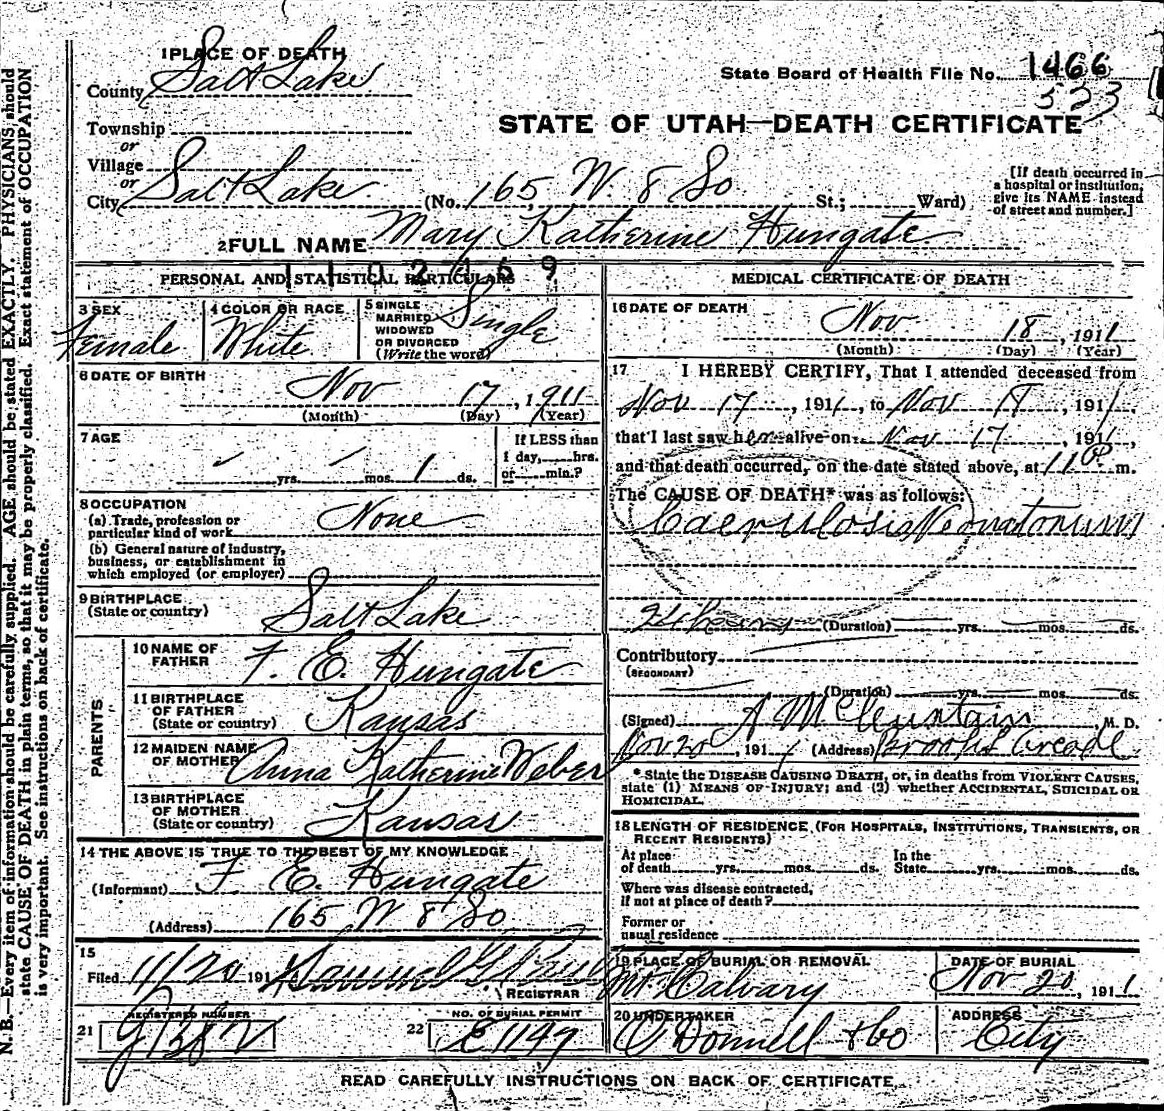 1 PLACE OF DEATH
County Salt Lake
Township
or
Village
or
City Salt Lake (No. 165 W 8 So St.; Ward)
State Board of Health File No. 1466
523
STATE OF UTAH—DEATH CERTIFICATE
[If death occurred in
a hospital or institution,
give its NAME instead
of street and number.]
2 FULL NAME Mary Katherine Hungate
PERSONAL AND STATISTICAL PARTICULARS
3 SEX
Female
4 COLOR OR RACE
White
5 SINGLE
MARRIED
WIDOWED
OR DIVORCED
(Write the word)
Single
6 DATE OF BIRTH
Nov 17, 1911
(Month) (Day) (Year)
7 AGE
yrs. mos. 1 ds.
If LESS than
1 day, hrs.
or min.?
8 OCCUPATION
(a) Trade, profession or
particular kind of work None
(b) General nature of industry,
business, or establishment in
which employed (or employer)
9 BIRTHPLACE
(State or country) Salt Lake
PARENTS
10 NAME OF
FATHER F. E. Hungate
11 BIRTHPLACE
OF FATHER
(State or country) Kansas
12 MAIDEN NAME
OF MOTHER Anna Katherine Weber
13 BIRTHPLACE
OF MOTHER
(State or country) Kansas
14 THE ABOVE IS TRUE TO THE BEST OF MY KNOWLEDGE
(Informant) F. E. Hungate
(Address) 165 W 8 So
15
Filed 11/20 191 Samuel G.
REGISTRAR
21 REGISTERED NUMBER
22 NO. OF BURIAL PERMIT
E1149
MEDICAL CERTIFICATE OF DEATH
16 DATE OF DEATH
Nov 18, 1911
(Month) (Day) (Year)
17 I HEREBY CERTIFY, That I attended deceased from
Nov 17, 1911, to Nov 18, 1911,
that I last saw her alive on Nov 17, 1911,
and that death occurred, on the date stated above, at 11 P m.
The CAUSE OF DEATH* was as follows:
Caerulosis Neonatorum
24 hours (Duration) yrs. mos. ds.
Contributory
(SECONDARY)
(Duration) yrs. mos. ds.
(Signed) M. D.
Nov 20, 1911 (Address) Brooks Arcade
* State the DISEASE CAUSING DEATH, or, in deaths from VIOLENT CAUSES,
state (1) MEANS OF INJURY; and (2) whether ACCIDENTAL, SUICIDAL OR
HOMICIDAL.
18 LENGTH OF RESIDENCE (FOR HOSPITALS, INSTITUTIONS, TRANSIENTS, OR
RECENT RESIDENTS)
At place
of death yrs. mos. ds. In the
State yrs. mos. ds.
Where was disease contracted,
if not at place of death?
Former or
usual residence
19 PLACE OF BURIAL OR REMOVAL
Mt Calvary
DATE OF BURIAL
Nov 20, 1911
20 UNDERTAKER
O'Donnell & Co
ADDRESS
City
READ CAREFULLY INSTRUCTIONS ON BACK OF CERTIFICATE
N. B.—Every item of information should be carefully supplied. AGE should be stated EXACTLY. PHYSICIANS should
state CAUSE OF DEATH in plain terms, so that it may be properly classified. Exact statement of OCCUPATION
is very important. See instructions on back of certificate.